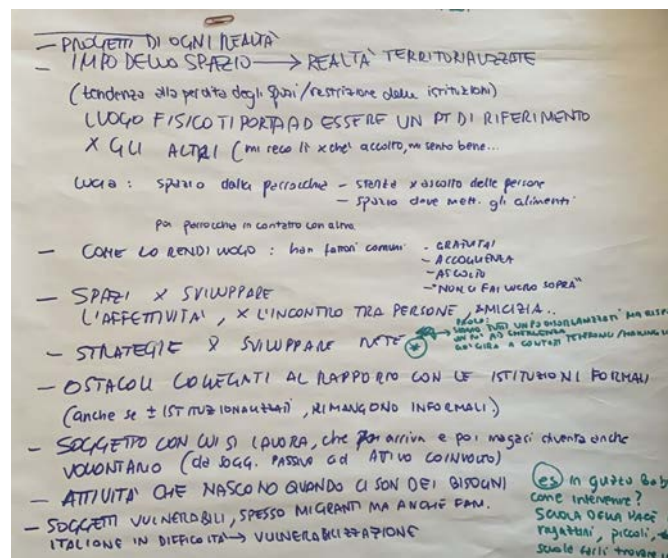 — PROGETTI DI OGNI REALTÀ
— IMPO DELLO SPAZIO → REALTÀ TERRITORIALIZZATE
(tendenza alla perdita degli spazi/restrizione delle istituzioni)
LUOGO FISICO TI PORTA AD ESSERE UN PT DI RIFERIMENTO
X GLI ALTRI (mi reco lì xchè accolto, mi sento bene...
: spazio dalla parrocchia – stanza x ascolto delle persone
– spazio dove mett. gli alimenti
poi parrocchia in contatto con altra
— COME LO RENDI LUOGO : han fattori comuni - GRATUITÀ
- ACCOGLIENZA
- ASCOLTO
- "NON CI FAI LUCRO SOPRA"
— SPAZI X SVILUPPARE
L'AFFETTIVITÀ, X L'INCONTRO TRA PERSONE, AMICIZIA..
— STRATEGIE X SVILUPPARE RETE *
PAOLO:
SIAMO TUTTI UN PO DISORGANIZZATI MA
AD EMERGENZA
GIRA A CONTATTI TELEFONO
— OSTACOLI COLLEGATI AL RAPPORTO CON LE ISTITUZIONI FORMALI
(anche se ± ISTITUZIONALIZZATI, RIMANGONO INFORMALI)
— SOGGETTO CON CUI SI LAVORA, che arriva e poi magari diventa anche
VOLONTARIO (da SOGG. PASSIVO ad ATTIVO COINVOLTO)
— ATTIVITÀ CHE NASCONO QUANDO CI SON DEI BISOGNI
— SOGGETTI VULNERABILI, SPESSO MIGRANTI MA ANCHE FAM.
ITALIANE IN DIFFICOLTÀ → VULNERABILIZZAZIONE
es in
come intervenire?
SCUOLA DELLA PACE
ragazzini, piccoli,
scuole farli trovare